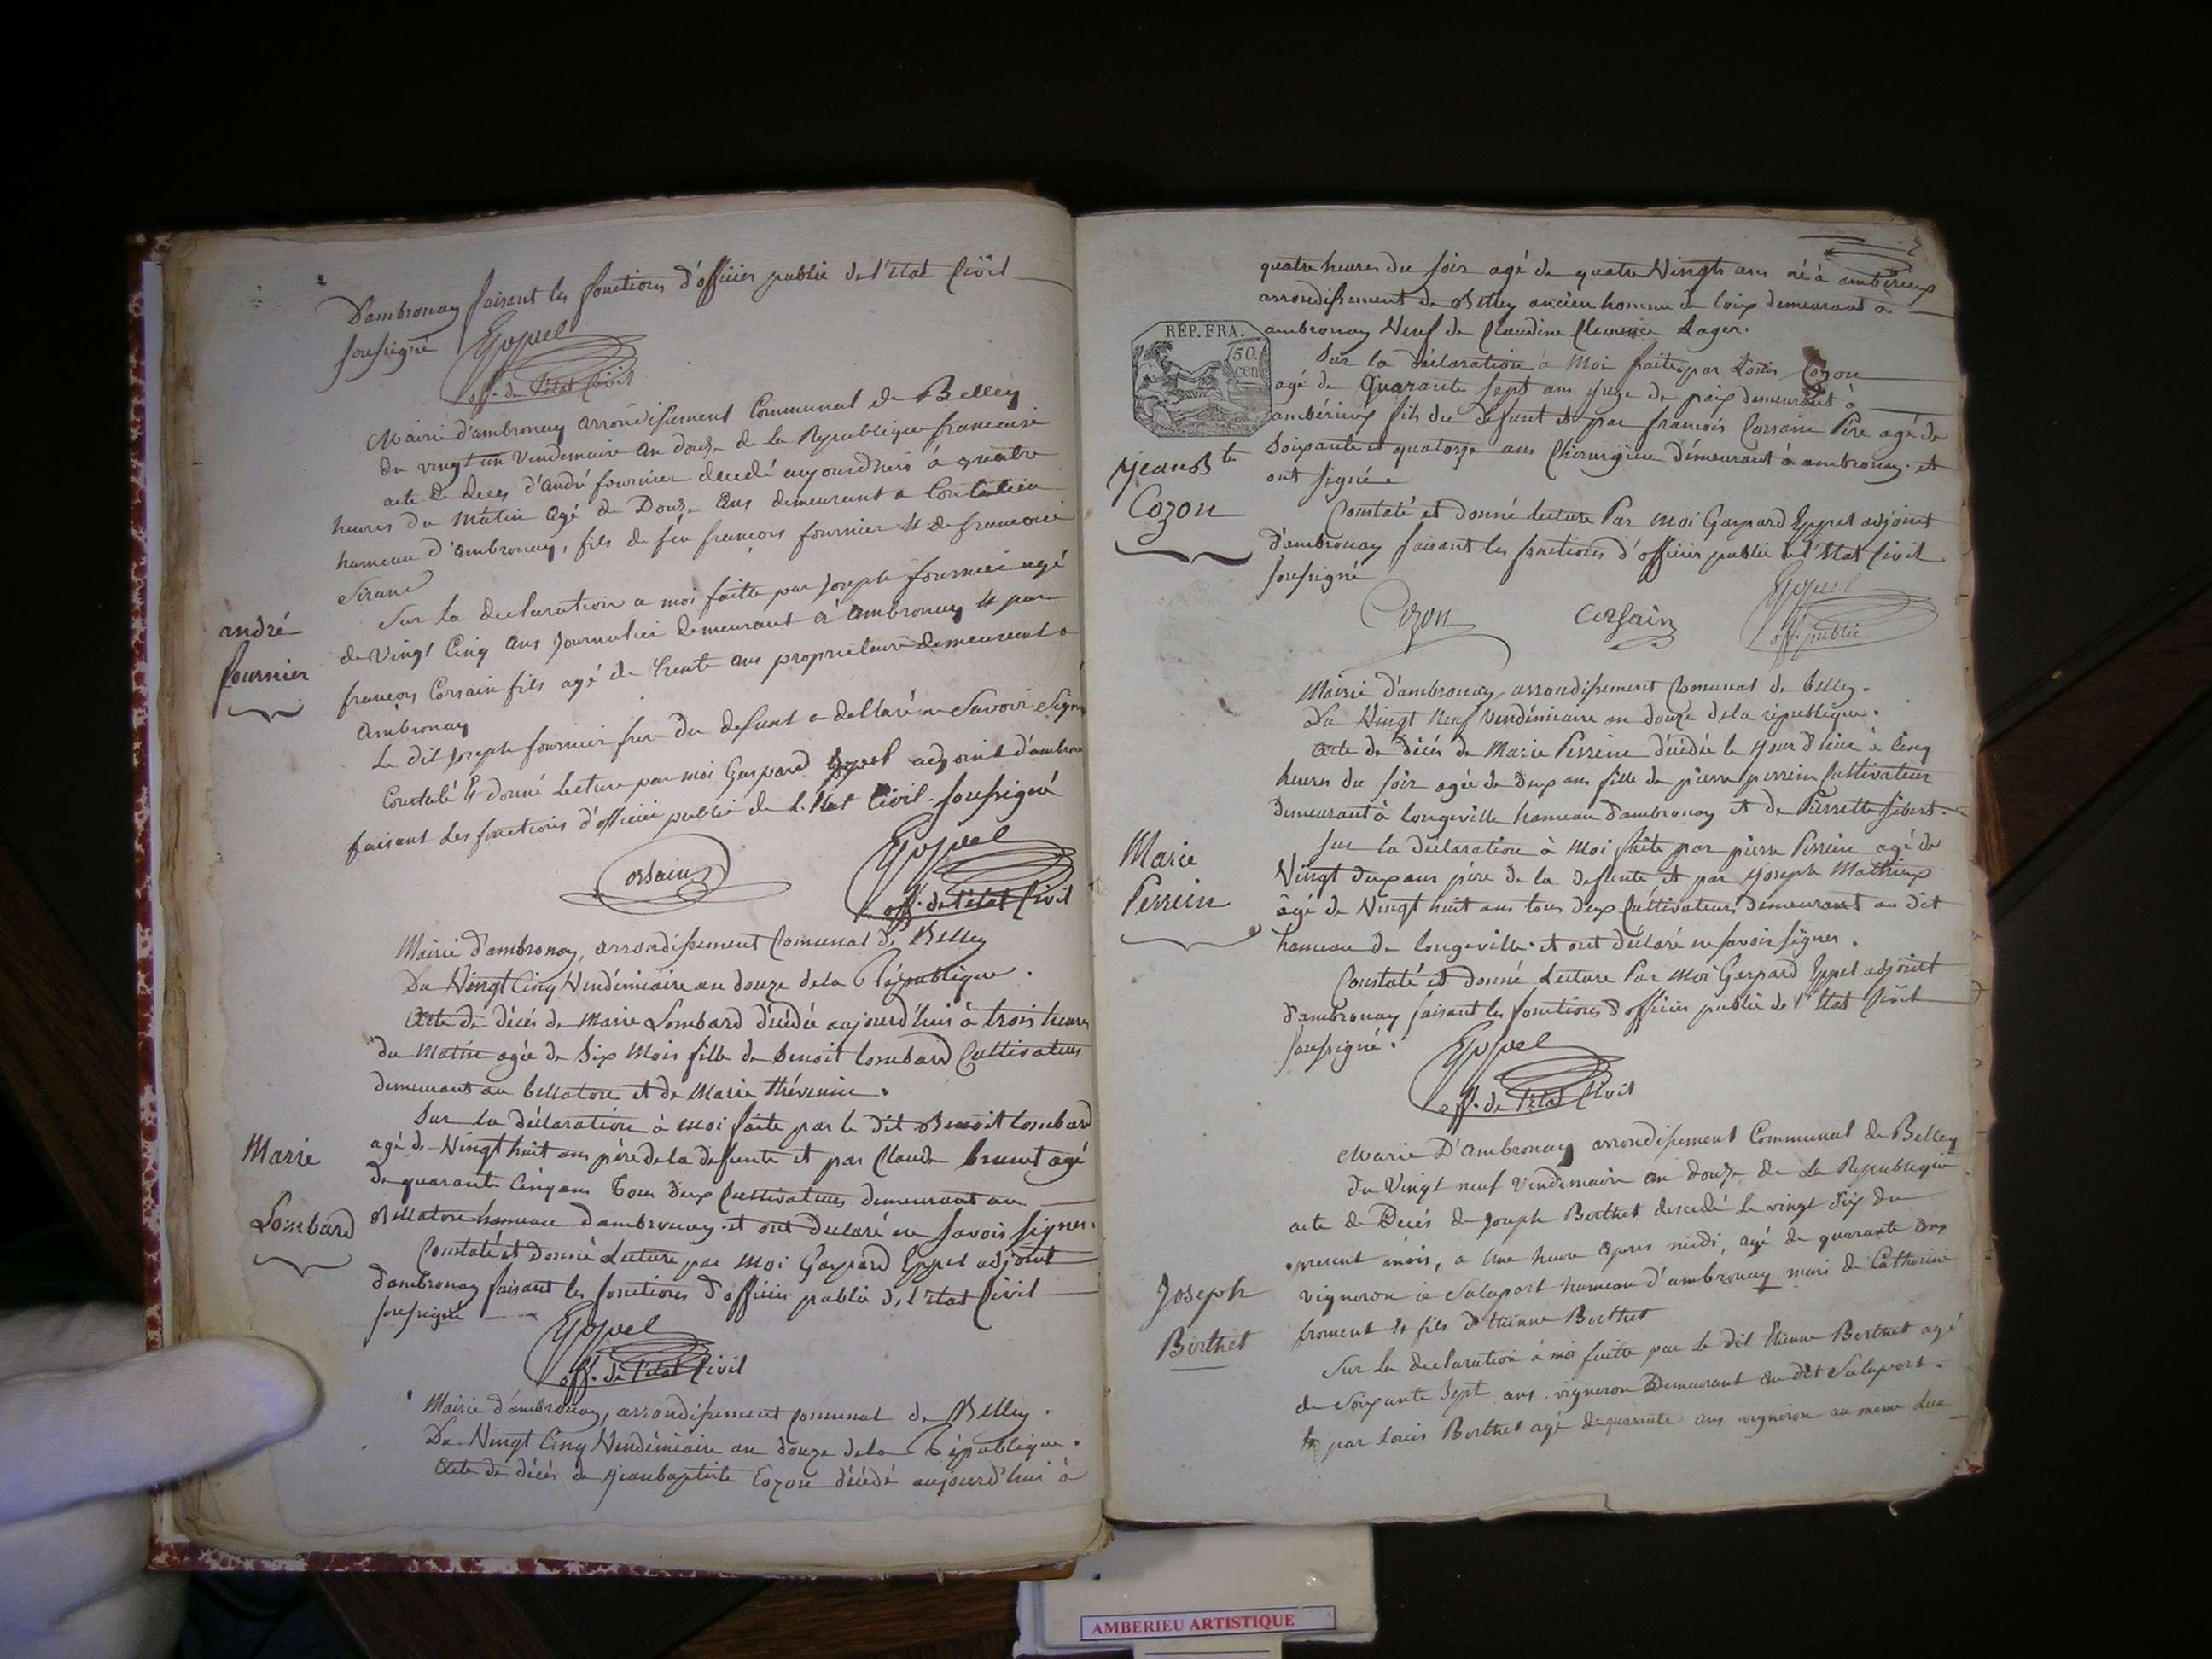 Dambronay faisant les fonctions d'officier public de l'Etat Civil
sousigné Eppel
off. de l'état Civil
Mairie d'ambronay arrondissement Communal de Belley
du vingt un Vendemiaire an douze de la Republique francaise
acte de deces d'andré fournier decedé aujourdhuis à quatre
heures du Matin agé de Douze ans demeurant a
hameau d'ambronay, fils de feu francois fournier et de francoise
Sirand
andré
fournier
Sur la declaration a moi faitte par Joseph fournier agé
de vingt Cinq ans Journalier demeurant à ambronay et par
francois Corsain fils agé de trente ans proprietaire demeurent a
ambronay
Le dit Joseph fournier frere du defunt a declaré ne Savoir Signer
Constaté et donné Lecture par moi Gaspard Eppel adjoint d'ambronay
faisant les fonctions d'officier public de l'Etat Civil sousigné
Corsain Eppel
off. de l'état Civil
Mairie d'ambronay, arrondissement Comunal de Belley
Du Vingt Cinq Vendémiaire an douze dela République.
Acte de décés de Marie Lombard décédée aujourd'hui à trois heures
du Matin agée de Six Mois fille de Benoit Lombard Cultivateur
demeurant au bellaton et de Marie thévenin.
Marie
Lombard
Sur la déclaration à moi faite par le dit Benoit Lombard
agé de Vingt huit ans père de la defunte et par Claude brunet agé
de quarante Cinq ans tous deux Cultivateurs demeurant au
Bellaton hameau dambronay et ont declaré ne savoir signer.
Constaté et donné Lecture par moi Gaspard Eppel adjoint
d'ambronay faisant les fonctions d'officier public de l'état Civil
sousigné
Eppel
off. de l'état Civil
Mairie d'ambronay, arrondissement Comunal de Belley.
Du Vingt Cinq Vendémiaire an douze dela République.
Acte de décés de Jeanbaptiste Cozon décédé aujourd'hui à
quatre heures du soir agé de quatre Vingts ans né à ambérieux
arrondissement de Belley ancien homme de loix demeurant à
ambronay Veuf de Claudine Clemence Lager.
REP. FRA.
50. cen
Jean Bte
Cozon
Sur la déclaration à Moi faite par Louis Cozon
agé de Quarante sept ans juge de paix demeurant à
ambérieux fils du défunt et par francois Corsain Père agé de
Soixante et quatorze ans Chirurgien demeurant à ambronay et
ont signé
Constaté et donné lecture Par moi Gaspard Eppel adjoint
d'ambronay faisant les fonctions d'officier public de l'Etat Civil
sousigné
Cozon Corsain Eppel
off. public
Mairie d'ambronay, arrondissement Comunal de belley.
Du Vingt Neuf Vendémiaire an douze dela république.
Acte de décés de Marie Perrin décédée le jour d'hier à Cinq
heures du soir agée de deux ans fille de pierre perrin Cultivateur
demeurant à longeville hameau dambronay et de Pierrette sibert.
Marie
Perrin
Sur la déclaration à Moi faite par pierre Perrin agé de
Vingt deux ans père de la defunte et par Joseph Mathieux
agé de Vingt huit ans tous deux Cultivateurs demeurant au dit
hameau de longeville et ont déclaré ne savoir signer.
Constaté et donné Lecture Par Moi Gaspard Eppel adjoint
d'ambronay faisant les fonctions d'officier public de l'Etat Civil
sousigné.
Eppel
off. de l'état Civil
Mairie D'Ambronay arrondissement Communal de Belley
du Vingt neuf Vendemiaire an douze de La Republique
acte de Decés de Joseph Berthet descedé Le vingt six du
present mois, a Une heure apres midi, agé de quarante ans
vigneron à Salaport hameau d'ambronay mari de Catherine
froment et fils d'Etienne Berthet
Joseph
Berthet
Sur La declaration à moi faitte par Le dit Etienne Berthet agé
de Soixante Sept ans vigneron Demeurant au dit Salaport.
Et par Louis Berthet agé de quarante ans vigneron au meme lieu
AMBERIEU ARTISTIQUE